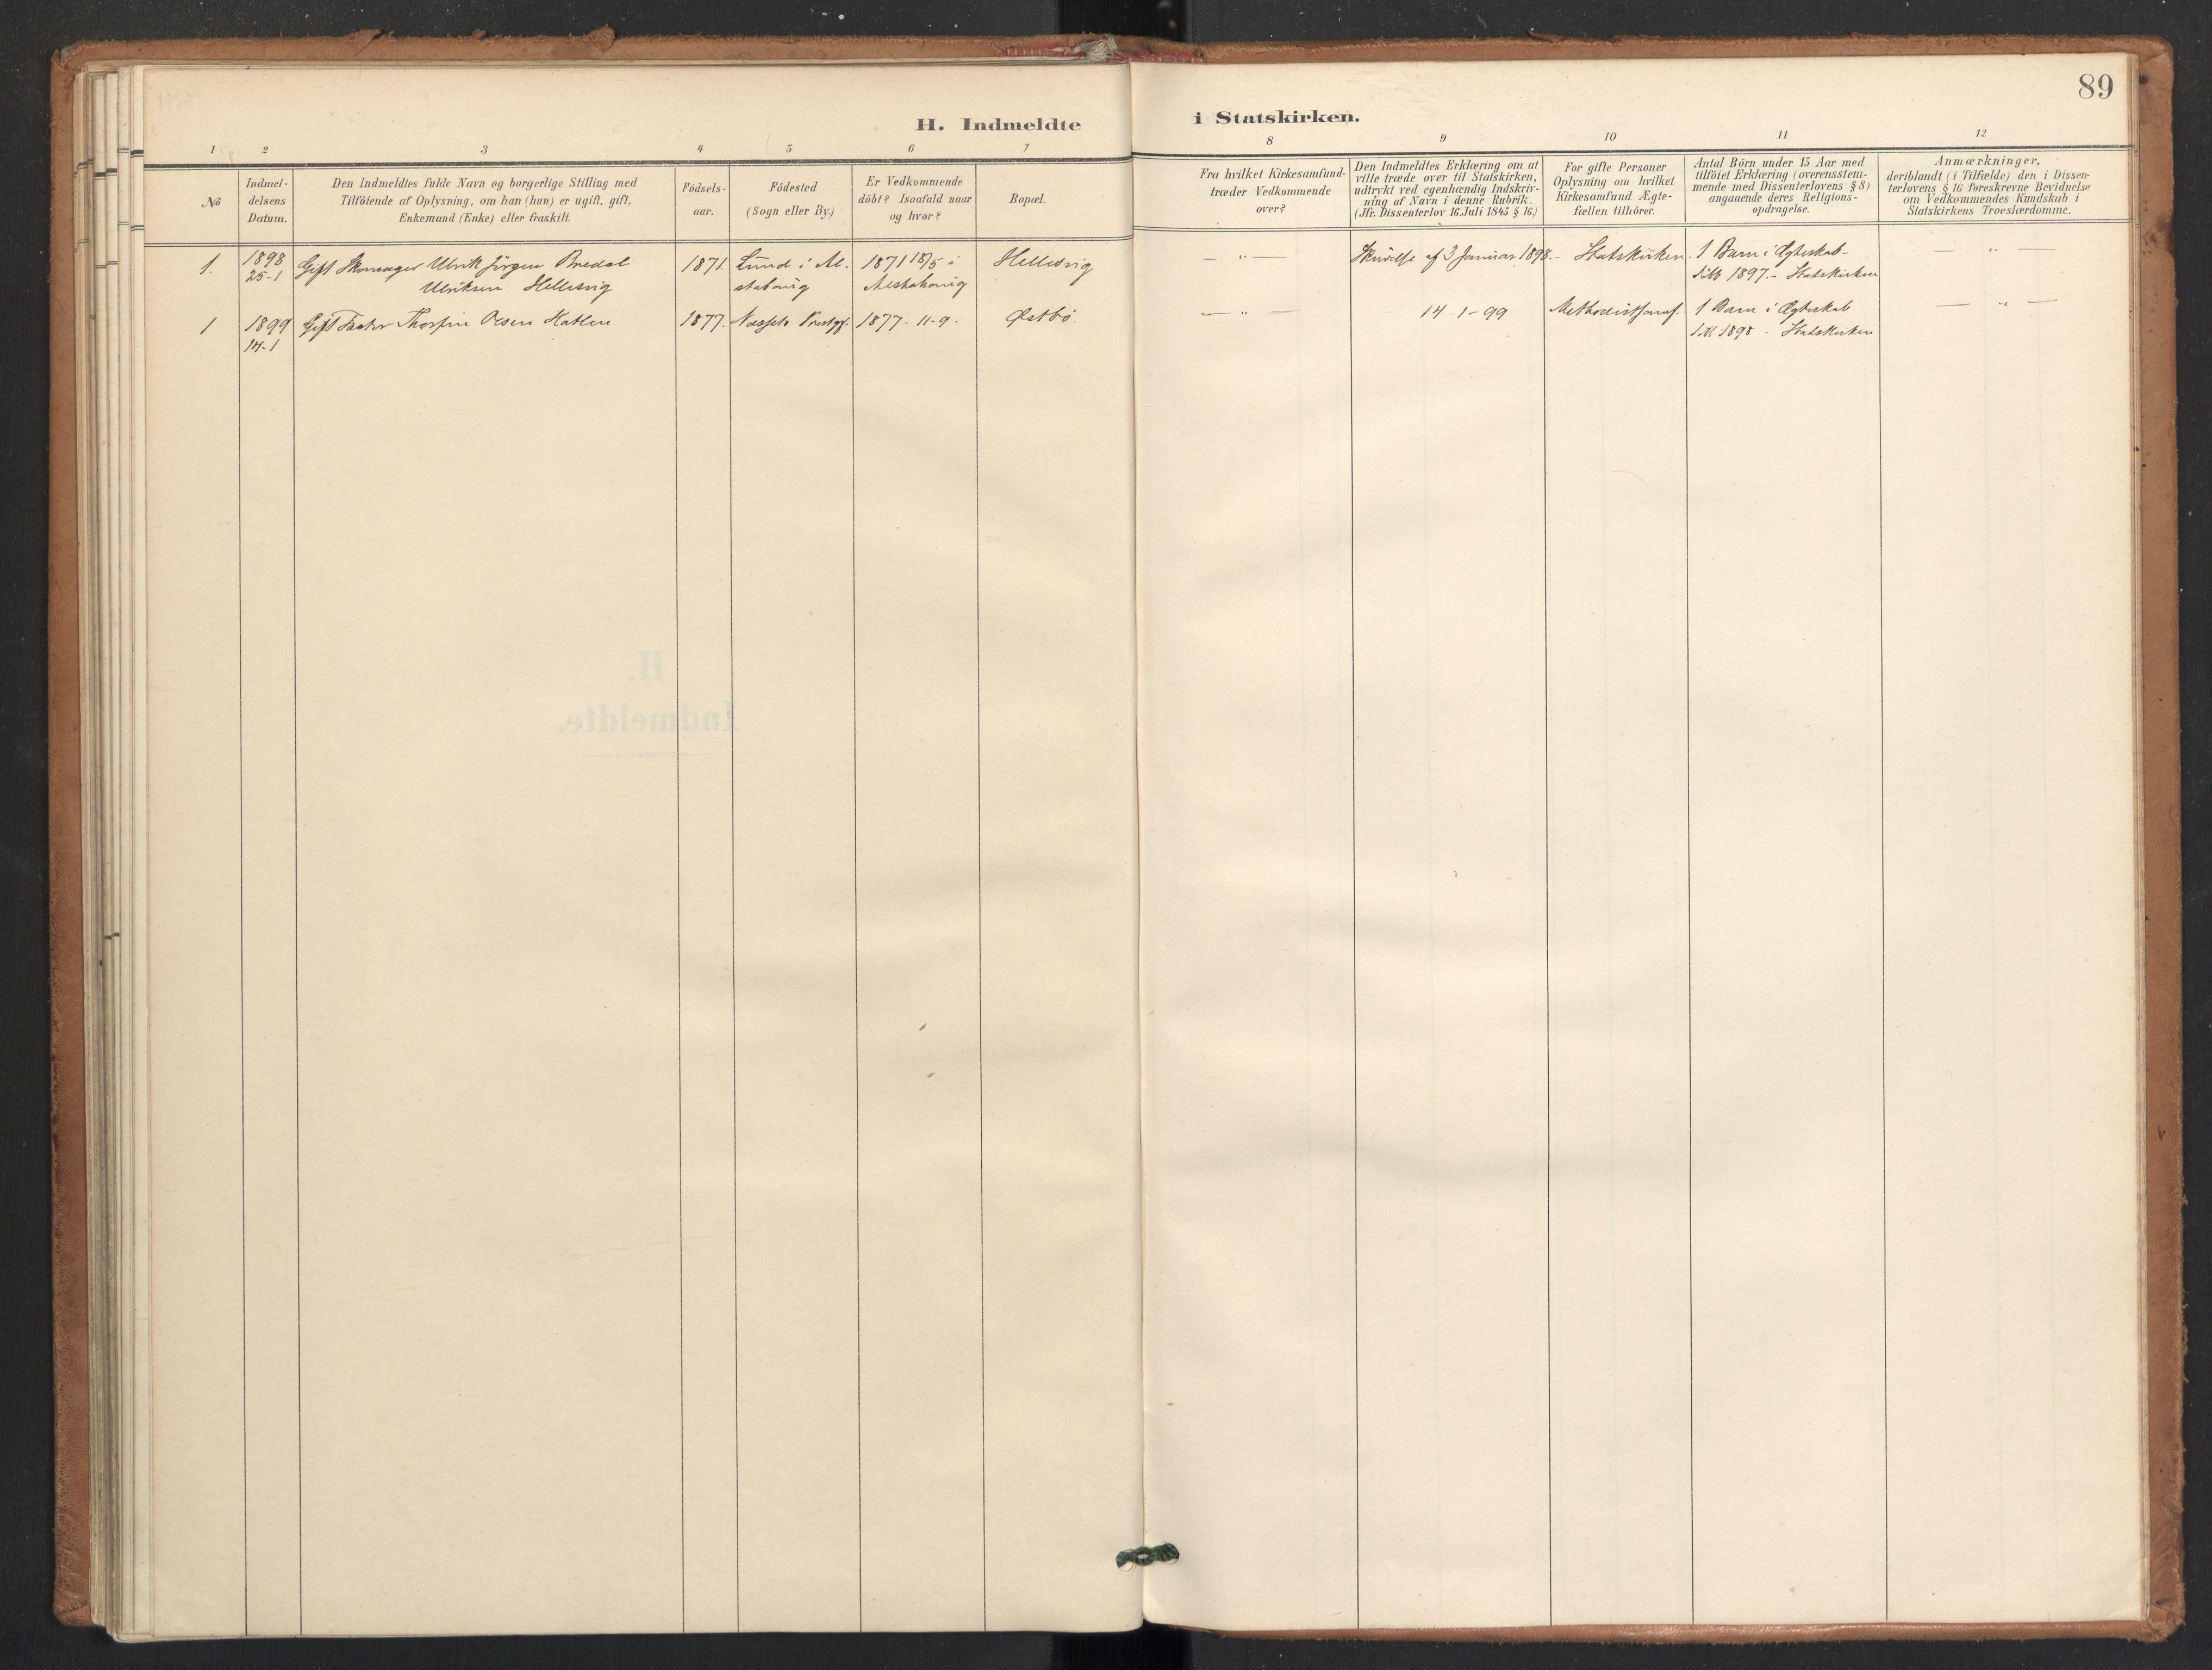 89
H. Indmeldte i Statskirken.
1 2 3 4 5 6 7 8 9 10 11 12
No
Indmel-
delsens
Datum.
Den Indmeldtes fulde Navn og borgerlige Stilling med
Tilföiende af Oplysning, om han (hun) er ugift, gift,
Enkemand (Enke) eller fraskilt.
Födsels-
aar.
Födested
(Sogn eller By.)
Er Vedkommende
döbt? Isaafald naar
og hvor?
Bopæl.
Fra hvilket Kirkesamfund
træder Vedkommende
over?
Den Indmeldtes Erklæring om at
ville træde over til Statskirken,
udtrykt ved egenhændig Indskriv-
ning af Navn i denne Rubrik.
(Jfr. Dissenterlov 16 Juli 1845 § 16.)
For gifte Personer
Oplysning om hvilket
Kirkesamfund Ægte-
fællen tilhörer.
Antal Börn under 15 Aar med
tilföiet Erklæring (overensstem-
mende med Dissenterlovens § 8)
angaaende deres Religions-
opdragelse.
Anmærkninger,
deriblandt (i Tilfælde) den i Dissen-
terlovens § 16 foreskrevne Bevidnelse
om Vedkommendes Kundskab i
Statskirkens Troeslærdomme.
1.
1898
25-1
Gift Skomager Ulrik Jörgen Bredal
Ulriksen Hellesvig
1871.
Lund i Al-
stahoug
1871 18/5 i
Alstahoug
Hellesvig
— " —
af 3 Januar 1898.-
Statskirken.
1 Barn i Ægteskab
1897.- Statskirken
— " —
1
1899
14-1
Gift Thorfin Olsen
1877.
1877- 11-9.
Østbö
— " —
14-1-99
Methodistsamf.
1 Barn i Ægteskab
1898 - Statskirken
— " —
H.
Indmeldte.